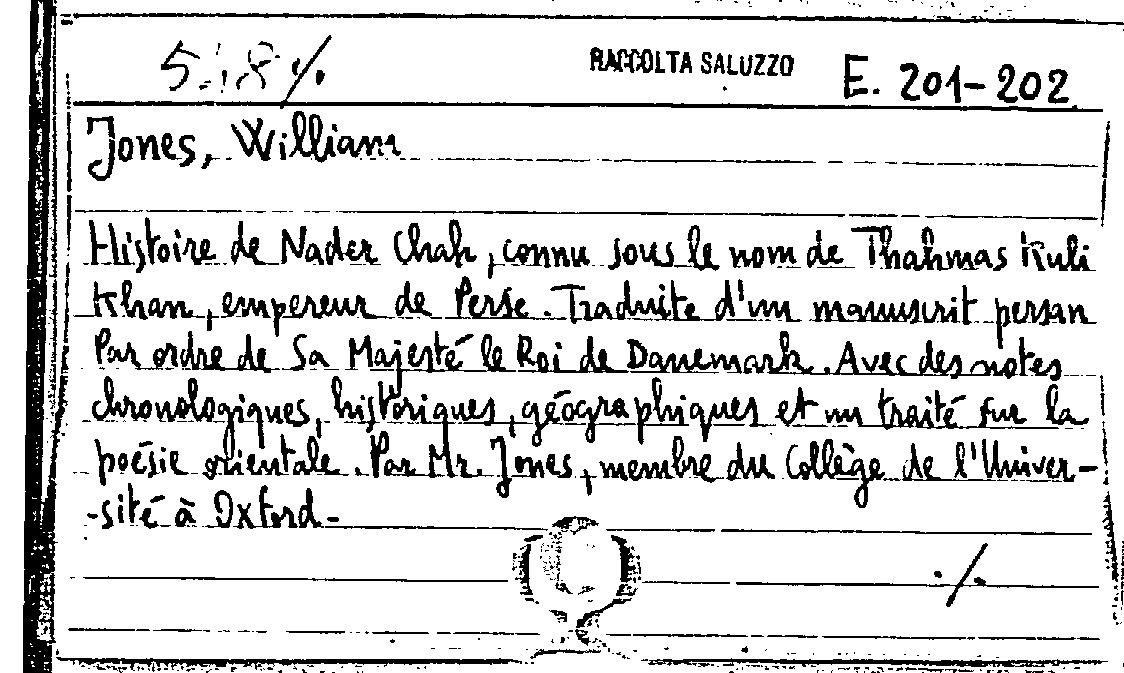 RACCOLTA SALUZZO E. 201-202
Jones, William
Histoire de Nader Chah, connu sous le nom de Thahmas Kuli
Khan, empereur de Perse. Traduite d'un manuscrit persan
Par ordre de Sa Majesté le Roi de Danemark. Avec des notes
chronologiques, historiques, géographiques et un traité sur la
poésie orientale. Par Mr. Jones, membre du Collège de l'Univer-
-sité à Oxford-
./.